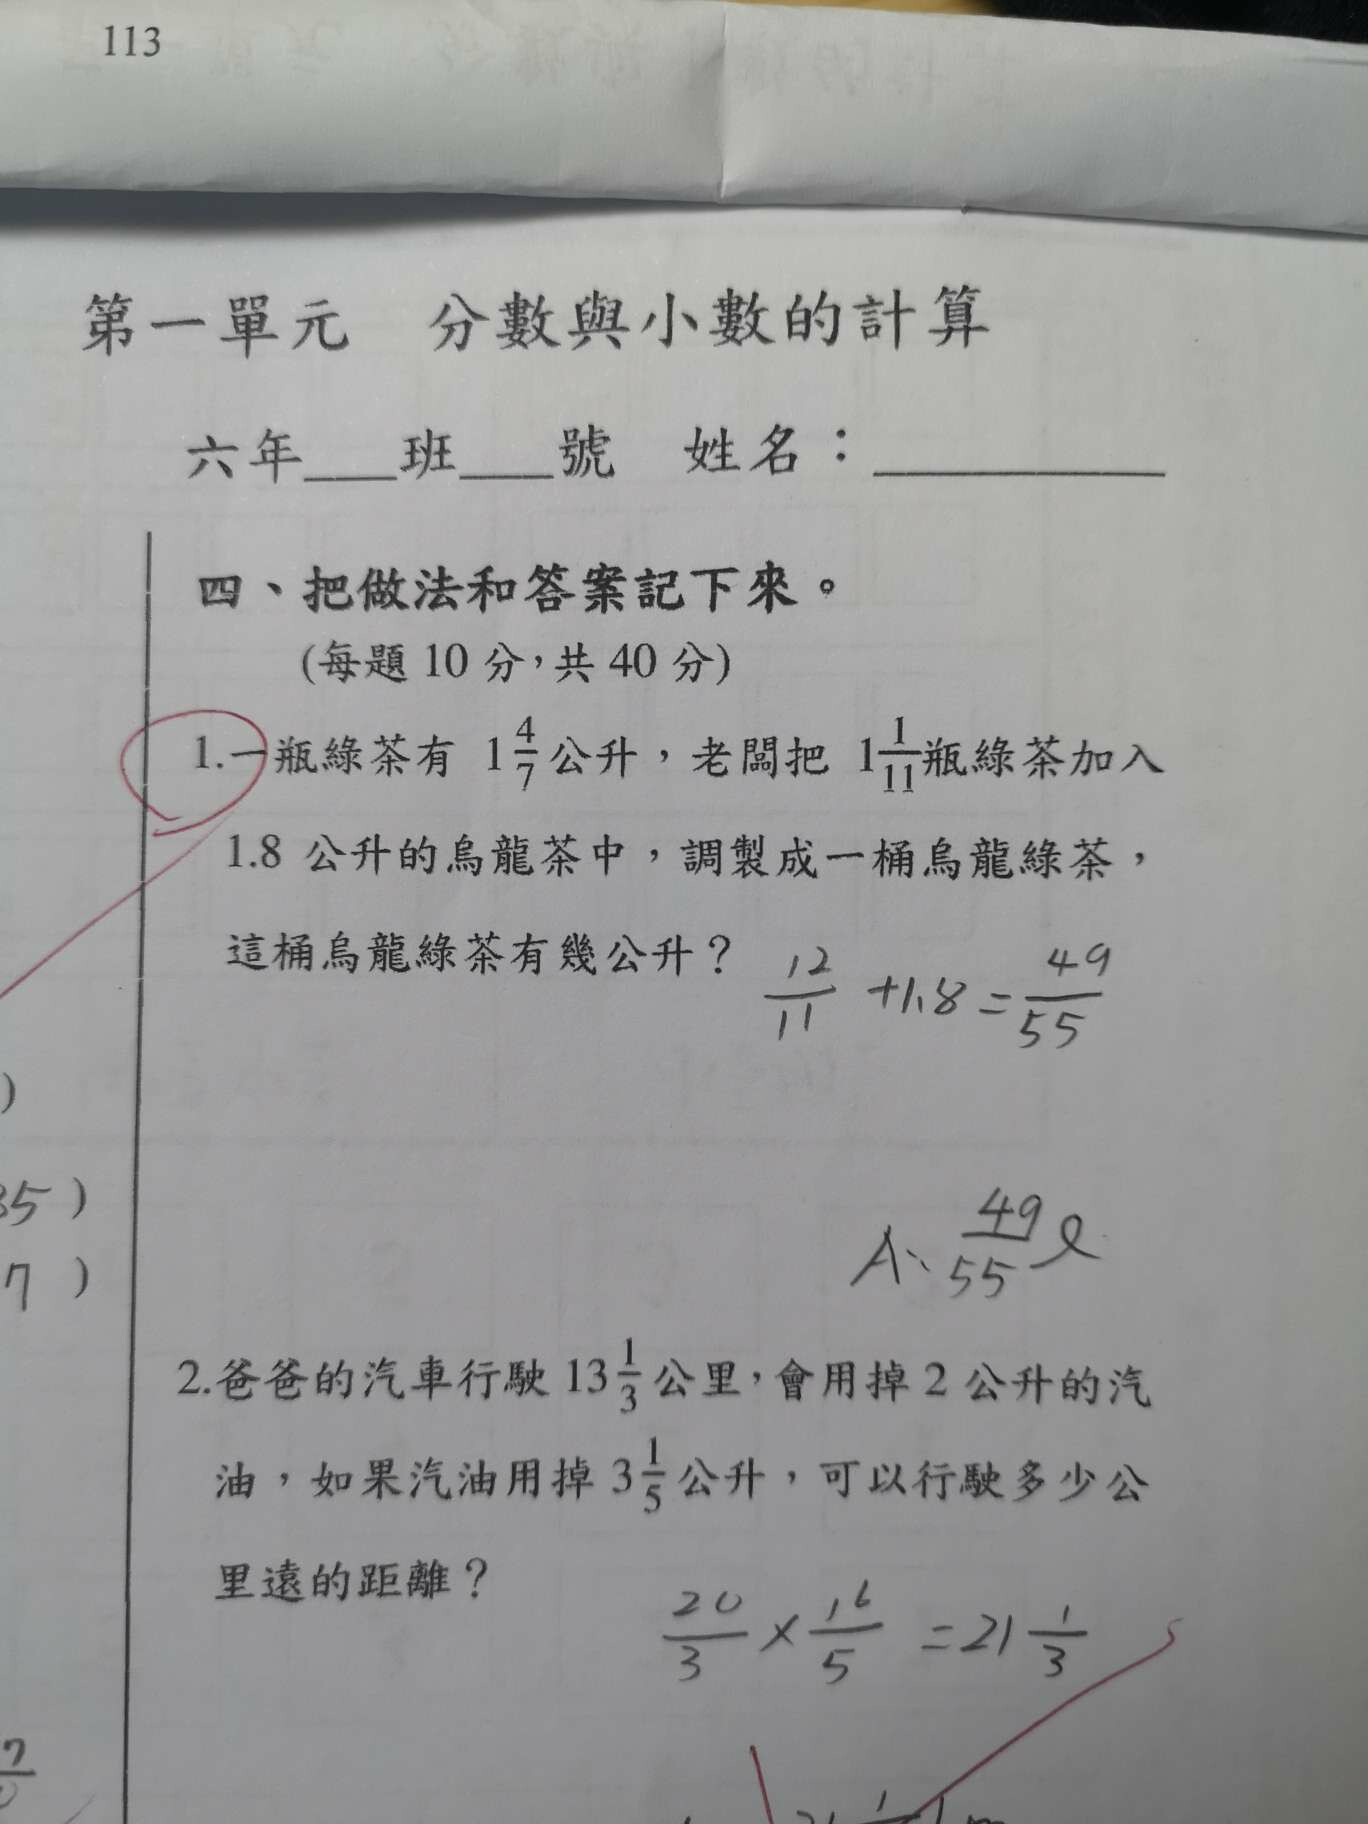 113
第一單元　分數與小數的計算
六年___班___號　姓名：__________
四、把做法和答案記下來。
(每題 10 分，共 40 分)
1.一瓶綠茶有 1 4/7 公升，老闆把 1 1/11 瓶綠茶加入
1.8 公升的烏龍茶中，調製成一桶烏龍綠茶，
這桶烏龍綠茶有幾公升？
12/11 +1.8 = 49/55
A. 49/55 ℓ
85 )
7 )
2.爸爸的汽車行駛 13 1/3 公里，會用掉 2 公升的汽
油，如果汽油用掉 3 1/5 公升，可以行駛多少公
里遠的距離？
20/3 × 16/5 = 21 1/3